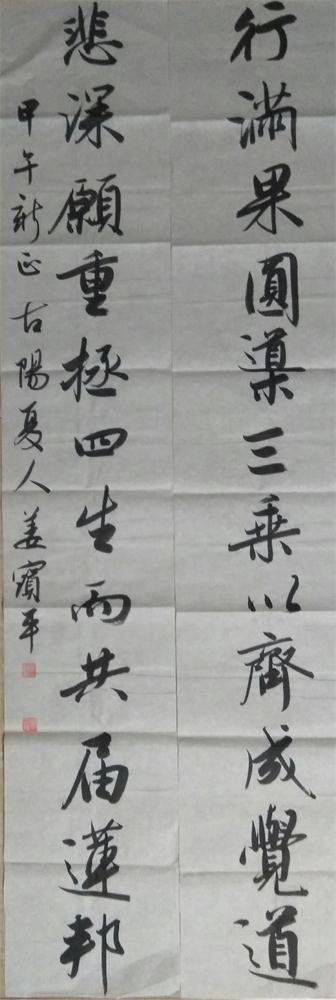 行滿果圓導三乗以齊成覺道
悲深願重拯四生而共届蓮邦
甲午新正古陽夏人姜寳平